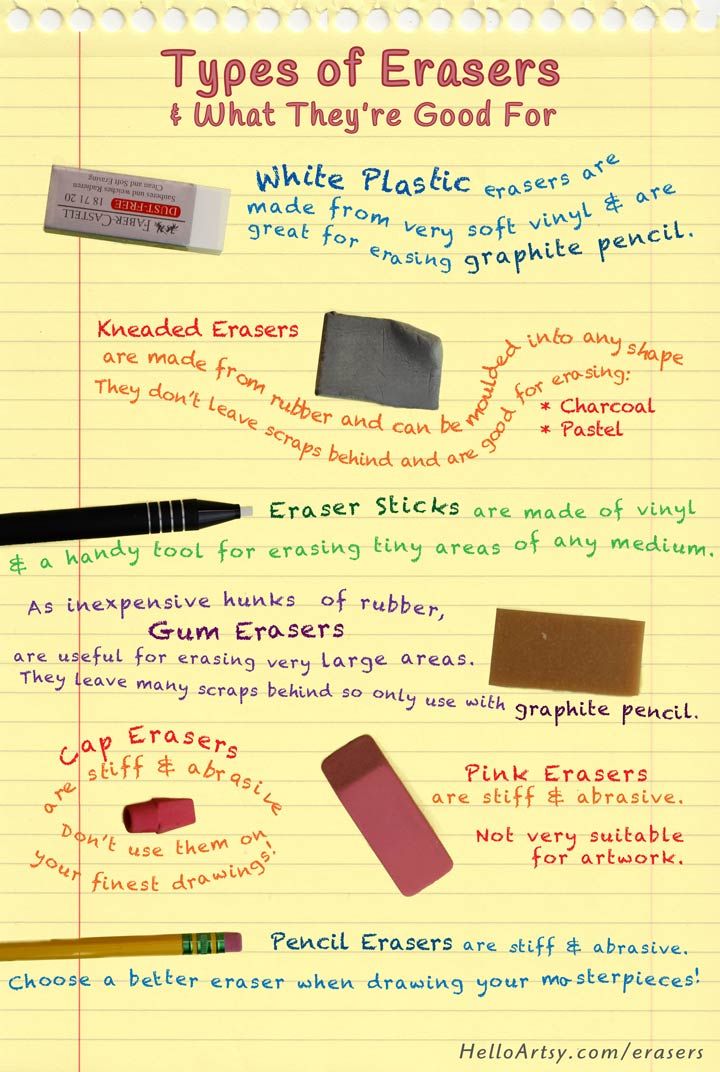 Types of Erasers
& What They're Good For
White Plastic erasers are
made from very soft vinyl & are
great for erasing graphite pencil.
FABER-CASTELL
DUST-FREE 18 71 20
Sauberes und weiches Radieren
Clean and Soft Erasing
Kneaded Erasers
are made from rubber and can be moulded into any shape
They don't leave scraps behind and are good for erasing:
* Charcoal
* Pastel
Eraser Sticks are made of vinyl
& a handy tool for erasing tiny areas of any medium.
As inexpensive hunks of rubber,
Gum Erasers
are useful for erasing very large areas.
They leave many scraps behind so only use with graphite pencil.
Cap Erasers
are stiff & abrasive
Don't use them on
your finest drawings!
Pink Erasers
are stiff & abrasive.
Not very suitable
for artwork.
Pencil Erasers are stiff & abrasive.
Choose a better eraser when drawing your masterpieces!
HelloArtsy.com/erasers